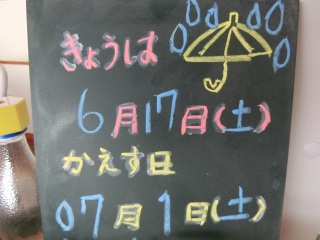 きょうは
6月17日(土)
かえす日
07月1日(土)